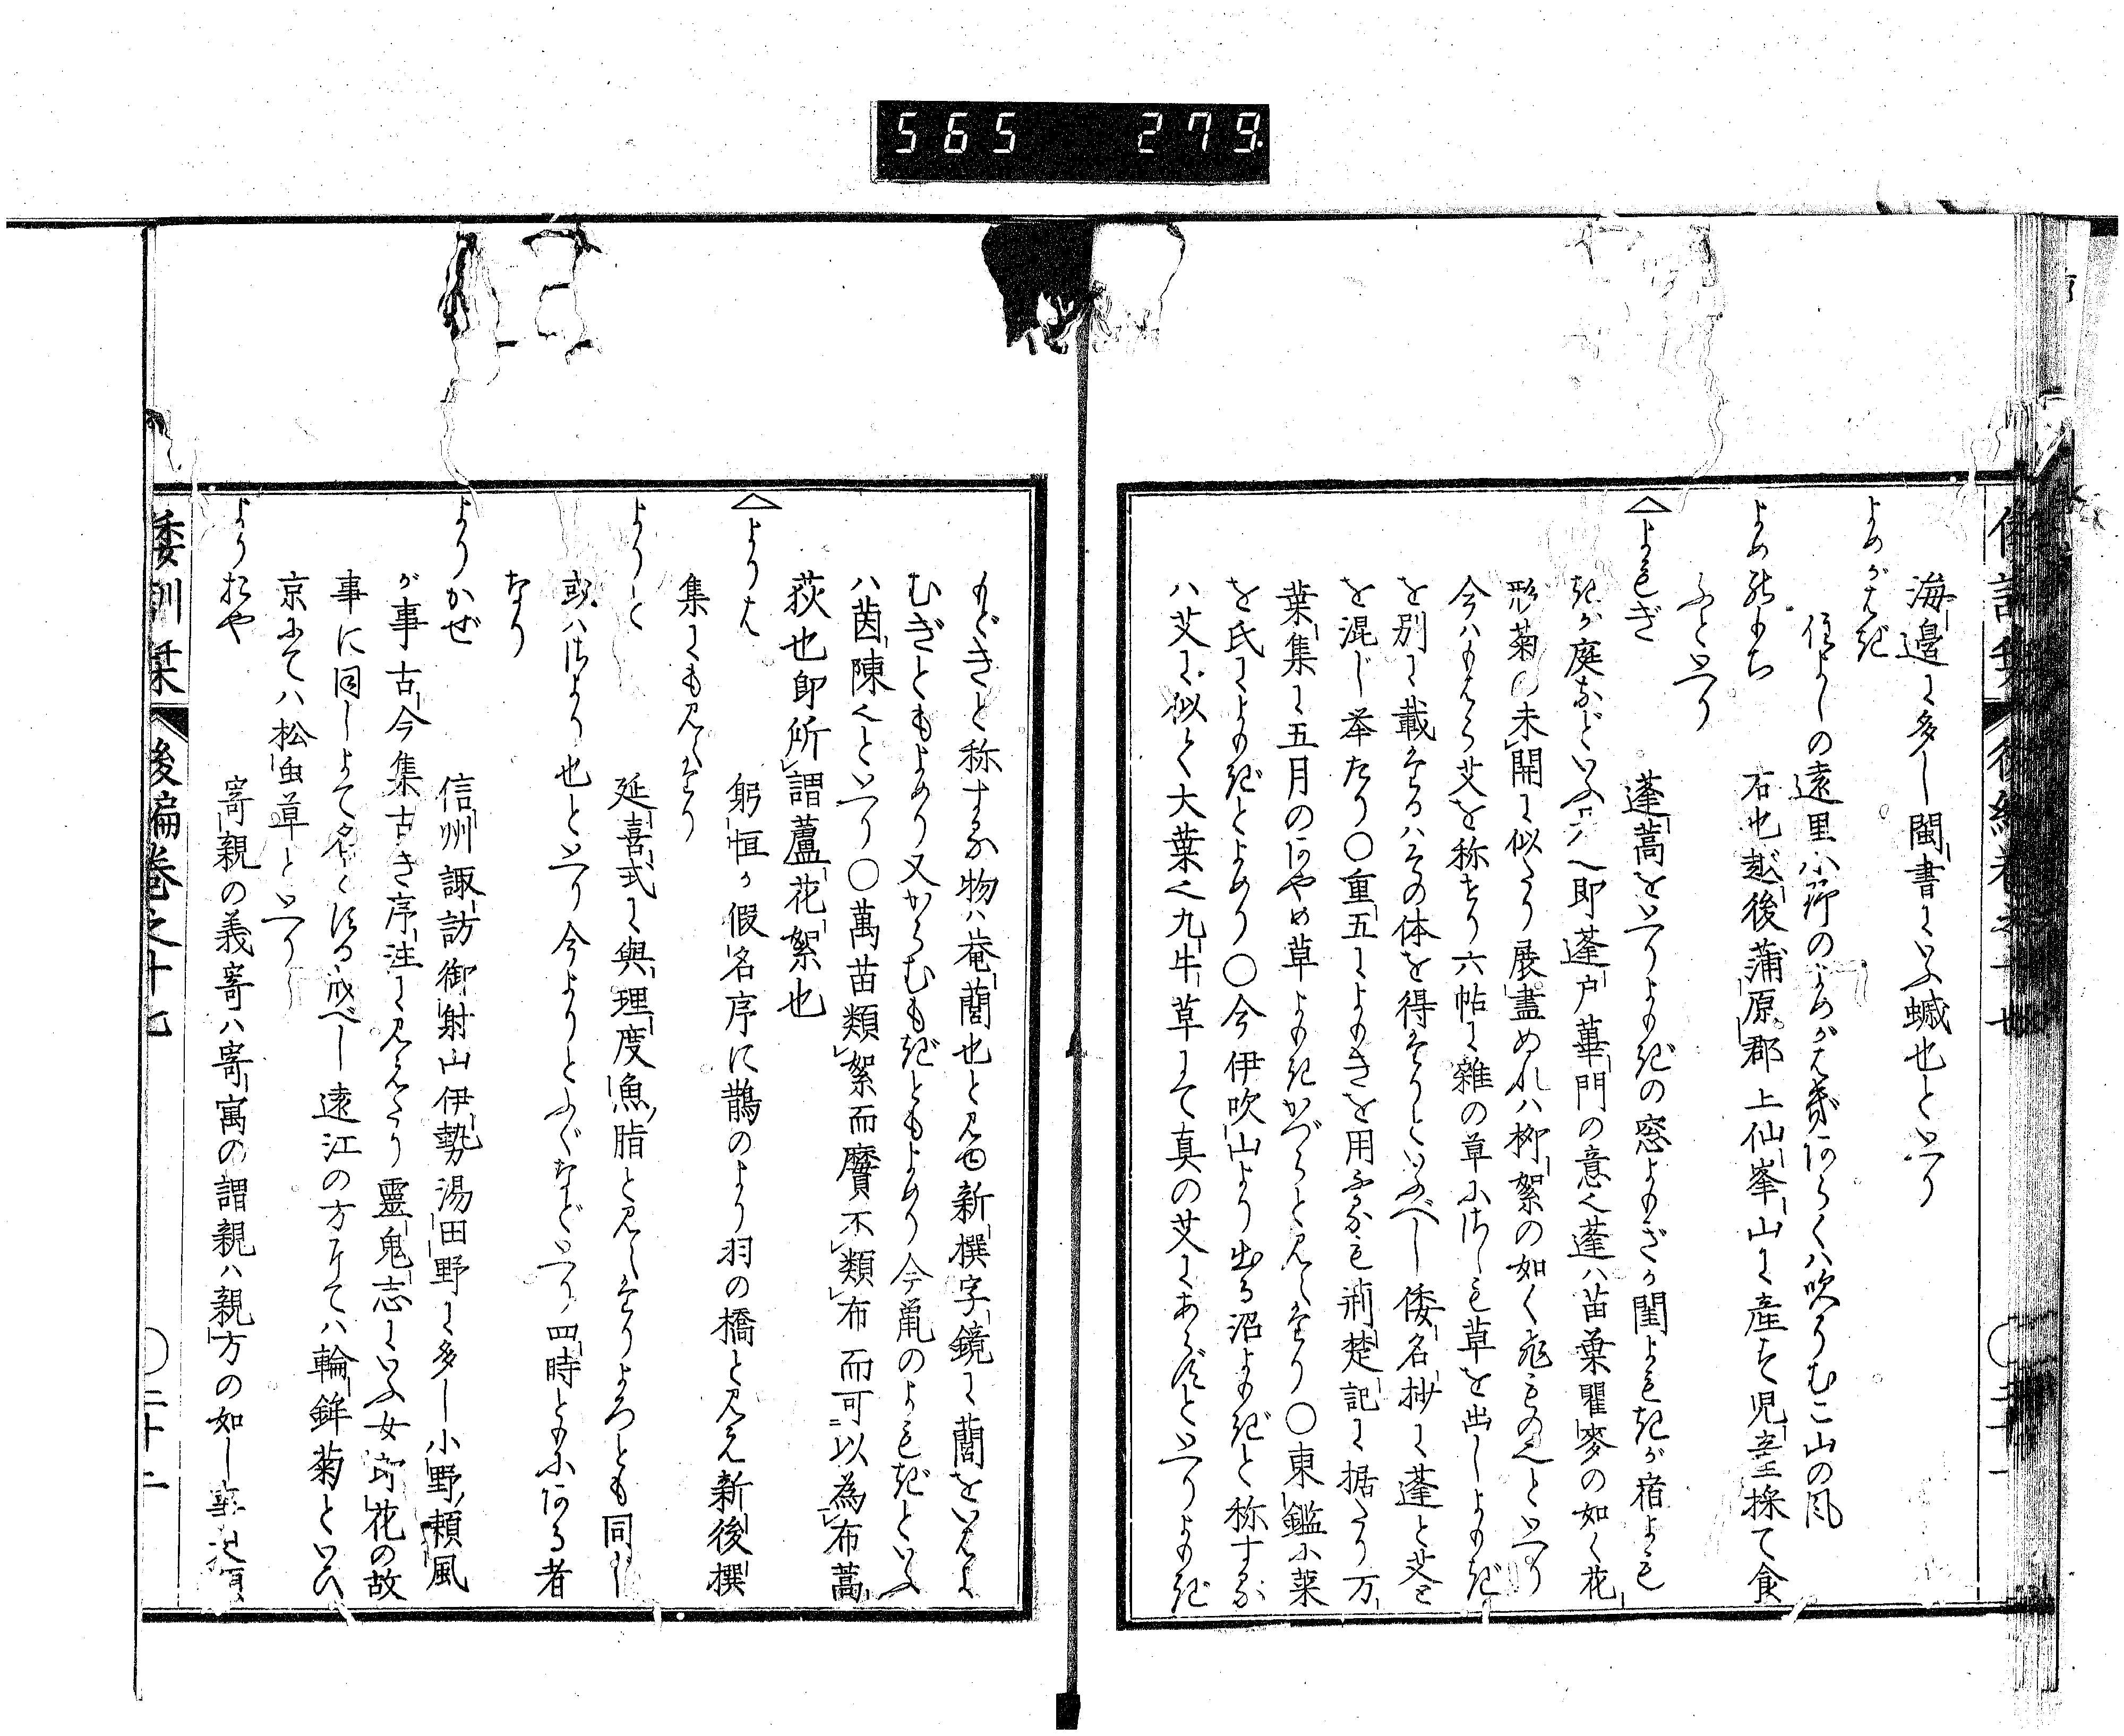 565 279
海邊に多し閩書にいふ蠘也といへり
よめがはぎ
住よしの遠里小野のよめがはぎ
吹うむこ山の風
よめのもち
石也越後蒲原郡上仙峯山に産す児童採て食
ふといへり
△よもぎ
蓬蒿をいへりよもぎの窓よもぎが閨よもぎが宿よも
ぎが庭などいふハ即蓬戸蓽門の意也蓬ハ苗葉瞿麥の如く花
形菊の未開に似たり展盡ぬれハ柳絮の如く飛もの也といへり
今ハもはら艾を称せり六帖に雜の草にさしも草を出しよもぎ
を別に載たるハその体を得たりといふべし倭名抄に蓬と艾と
を混じ挙たり〇重五によもきを用ふるも荊楚記に据たり万
葉集に五月のあやめ草よもぎかづらと見えたり〇東鑑に葉
を氏によもぎとよめり〇今伊吹山より出る沼よもぎと称する
ハ艾に似て大葉也九牛草にて真の艾にあらずといへりよもぎ
もどきと称する物ハ菴䕡也と見ゆ新撰字鏡に䕡をいはよ
むぎともよめり又からむもぎともよめり今鼠のよもぎといふ
ハ茵陳也といへり〇萬苗類絮而黂不類布而可以為布蒿
荻也即所謂蘆花絮也
△よりは
躬恒が假名序に鵲のより羽の橋と見え新後撰
集にも見えたり
よりと
延喜式に與理度魚脂と見えたりよろとも同じ
或ハさより也といへり今よりとふぐなどいへり四時ともにある者
なり
よりかぜ
信州諏訪御射山伊勢湯田野に多し小野頼風
が事古今集古き序注に見えたり靈鬼志にいふ女郎花の故
事に同しよて名くるなるべし遠江の方にてハ輪鉾菊といひ
京にてハ松虫草といへり
よりおや
寄親の義寄ハ寄寓の謂親ハ親方の如し
倭訓栞 後編巻之十七 〇二十二